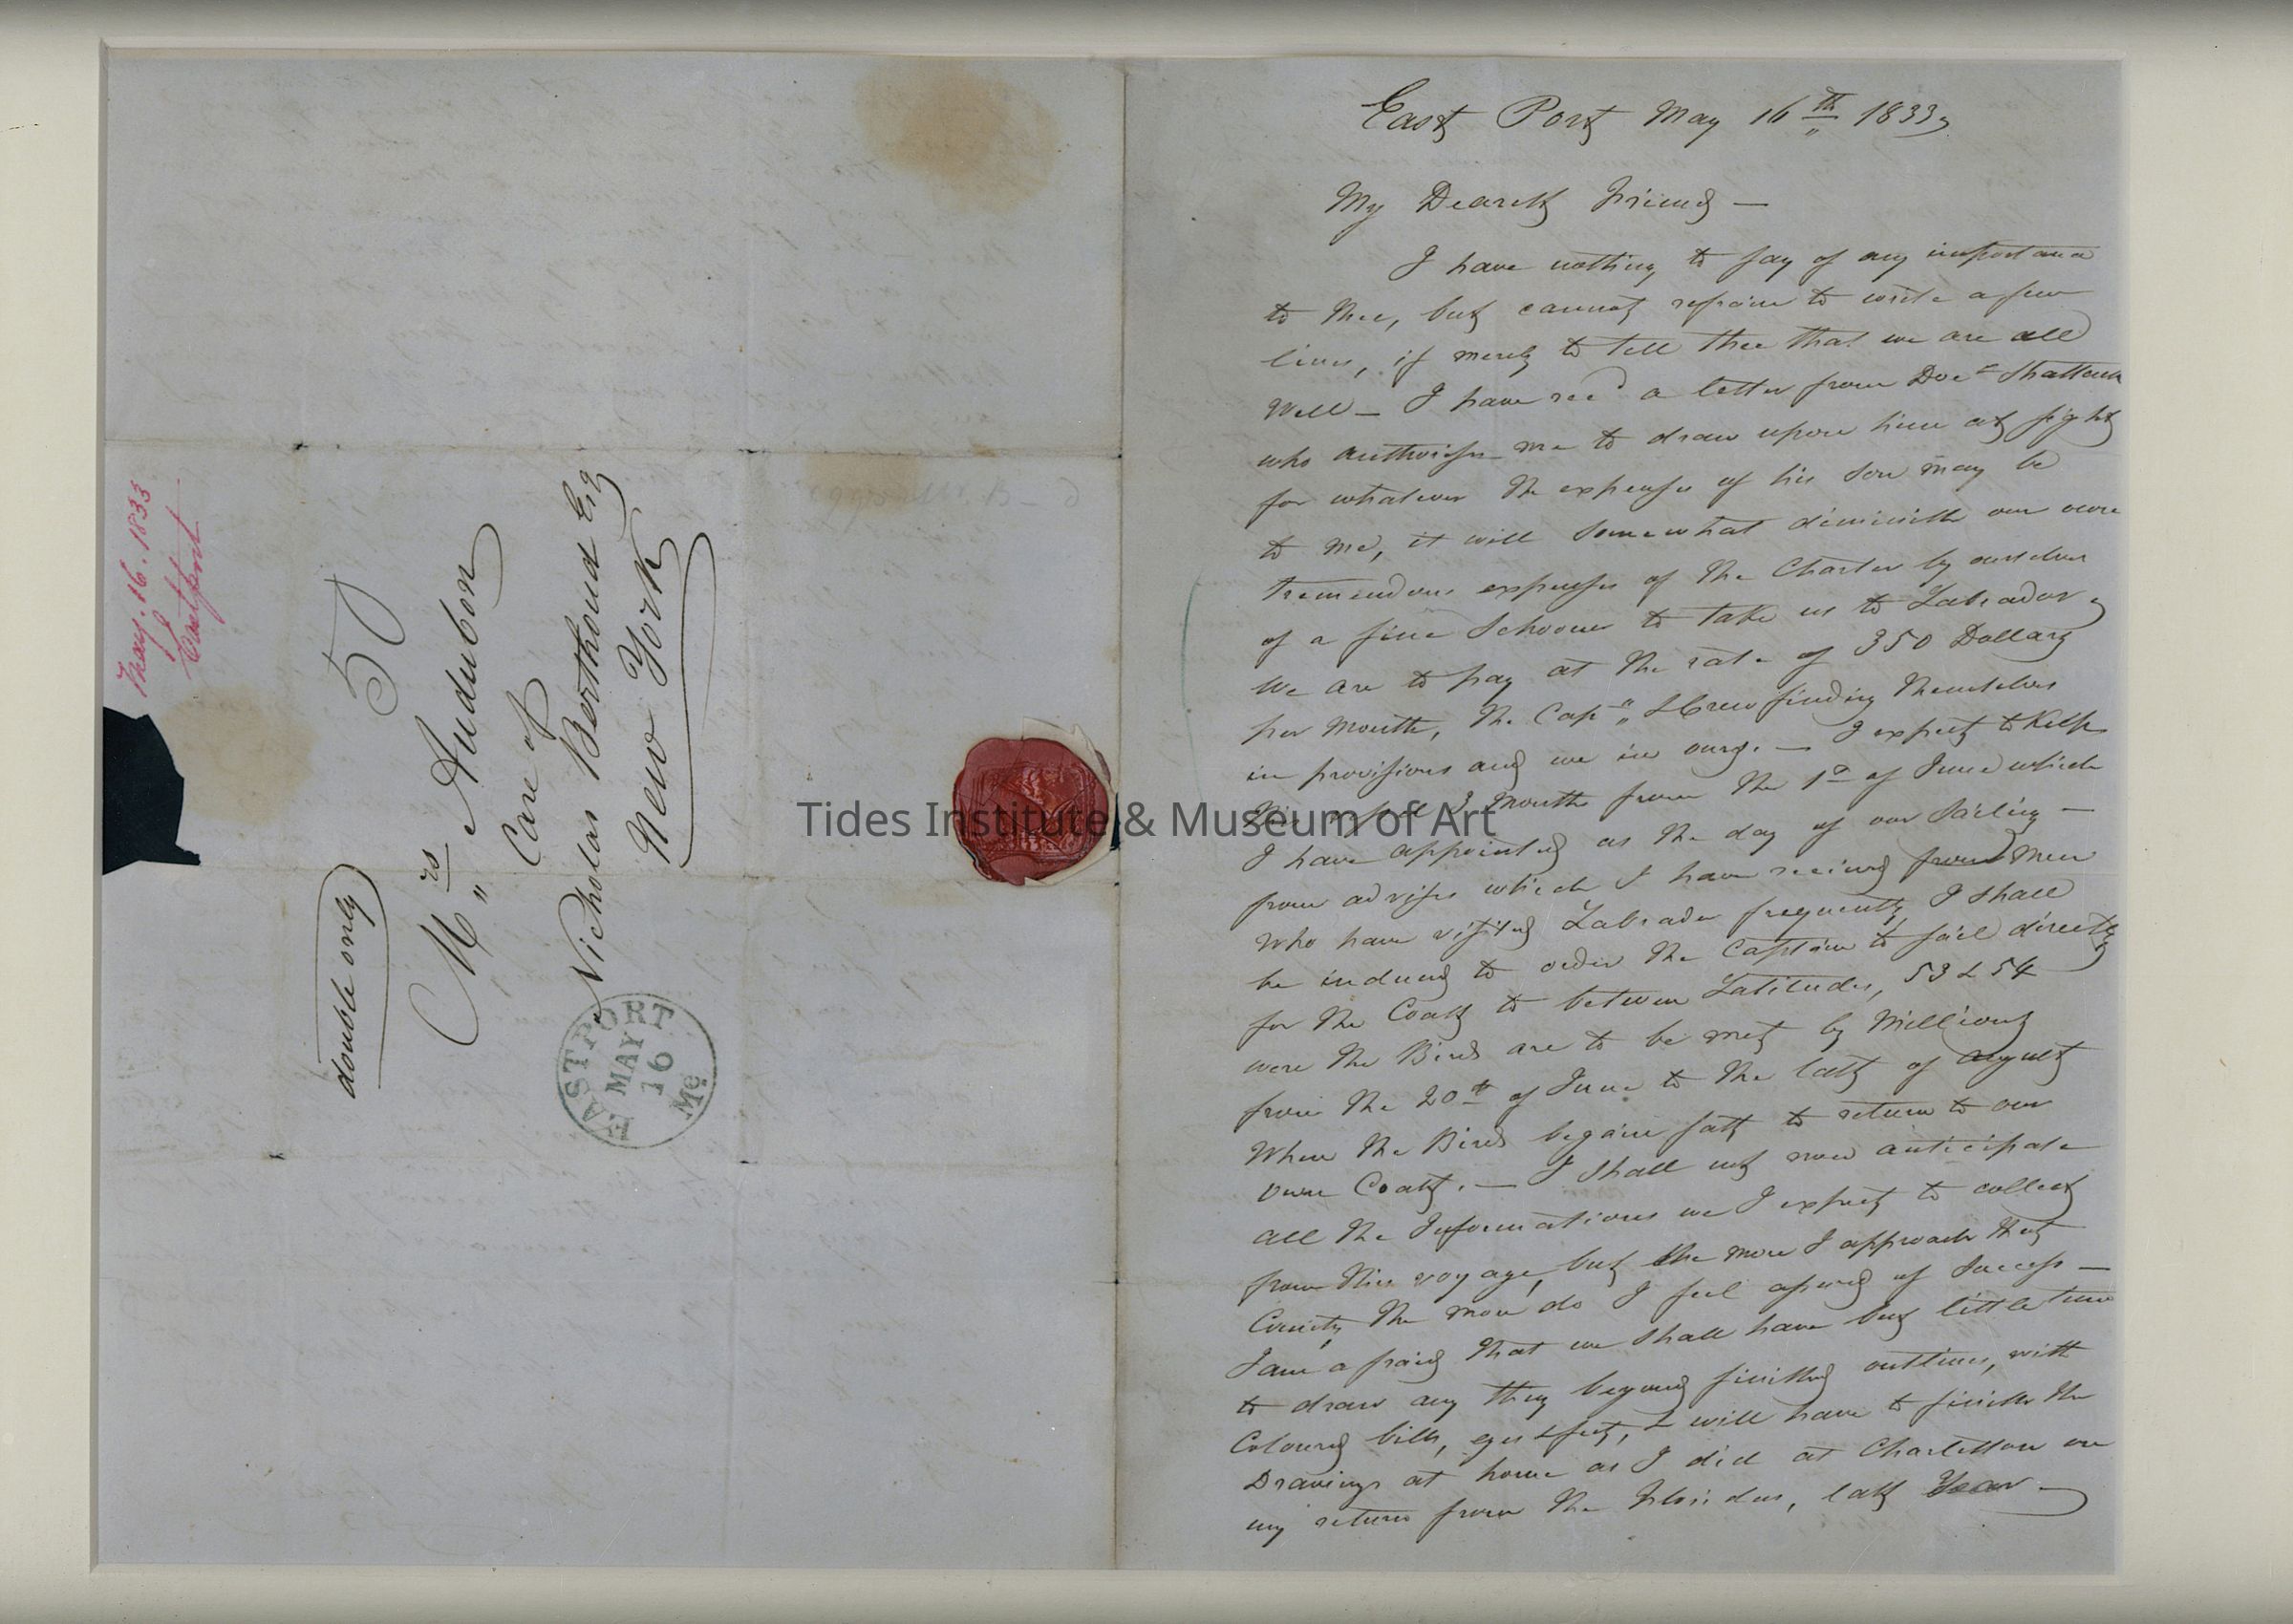 May. 16. 1833
Eastport
50
double only
Mrs Audubon
Care of
Nicholas Berthoud Esq
New York
EASTPORT
MAY
16
Me
Tides Institute & Museum of Art
East Port May 16th 1833,
My Dearest Friend —
I have nothing to say of any importance
to Thee, but cannot refrain to write a few
lines, if merely to tell thee that we are all
Well — I have recd a letter from Docr Shattuck
who authorises me to draw upon him at sight
for whatever the expenses of his Son may be
to me, it will somewhat diminish our own
tremendous expenses of the Charter by ourselves
of a fine Schooner to take us to Labrador,
We are to pay at the rate of 350 Dollars
per Month, the Capn & Crew finding themselves
in provisions and we in ours. — I expect to keep
this Vessel 3 Months from the 1st of June which
I have appointed as the day of our Sailing —
from advises which I have received from Men
who have visited Labrador frequently, I shall
be induced to order the Captain to sail directly
for the Coast to between Latitudes, 53 & 54
were the Birds are to be met by Millions
from the 20th of June to the last of August
When the Birds begain fast to return to our
own Coast. — I shall not now anticipate
all the Informations we I expect to collect
from this voyage, but the more I approach that
Country the more do I feel assured of Success —
I am afraid that we shall have but little time
to draw any thing beyond finished outlines, with
Coloured bills, eyes & feet, & will have to finish the
Drawings at home as I did at Charleston on
my return from the Floridas, last Year —